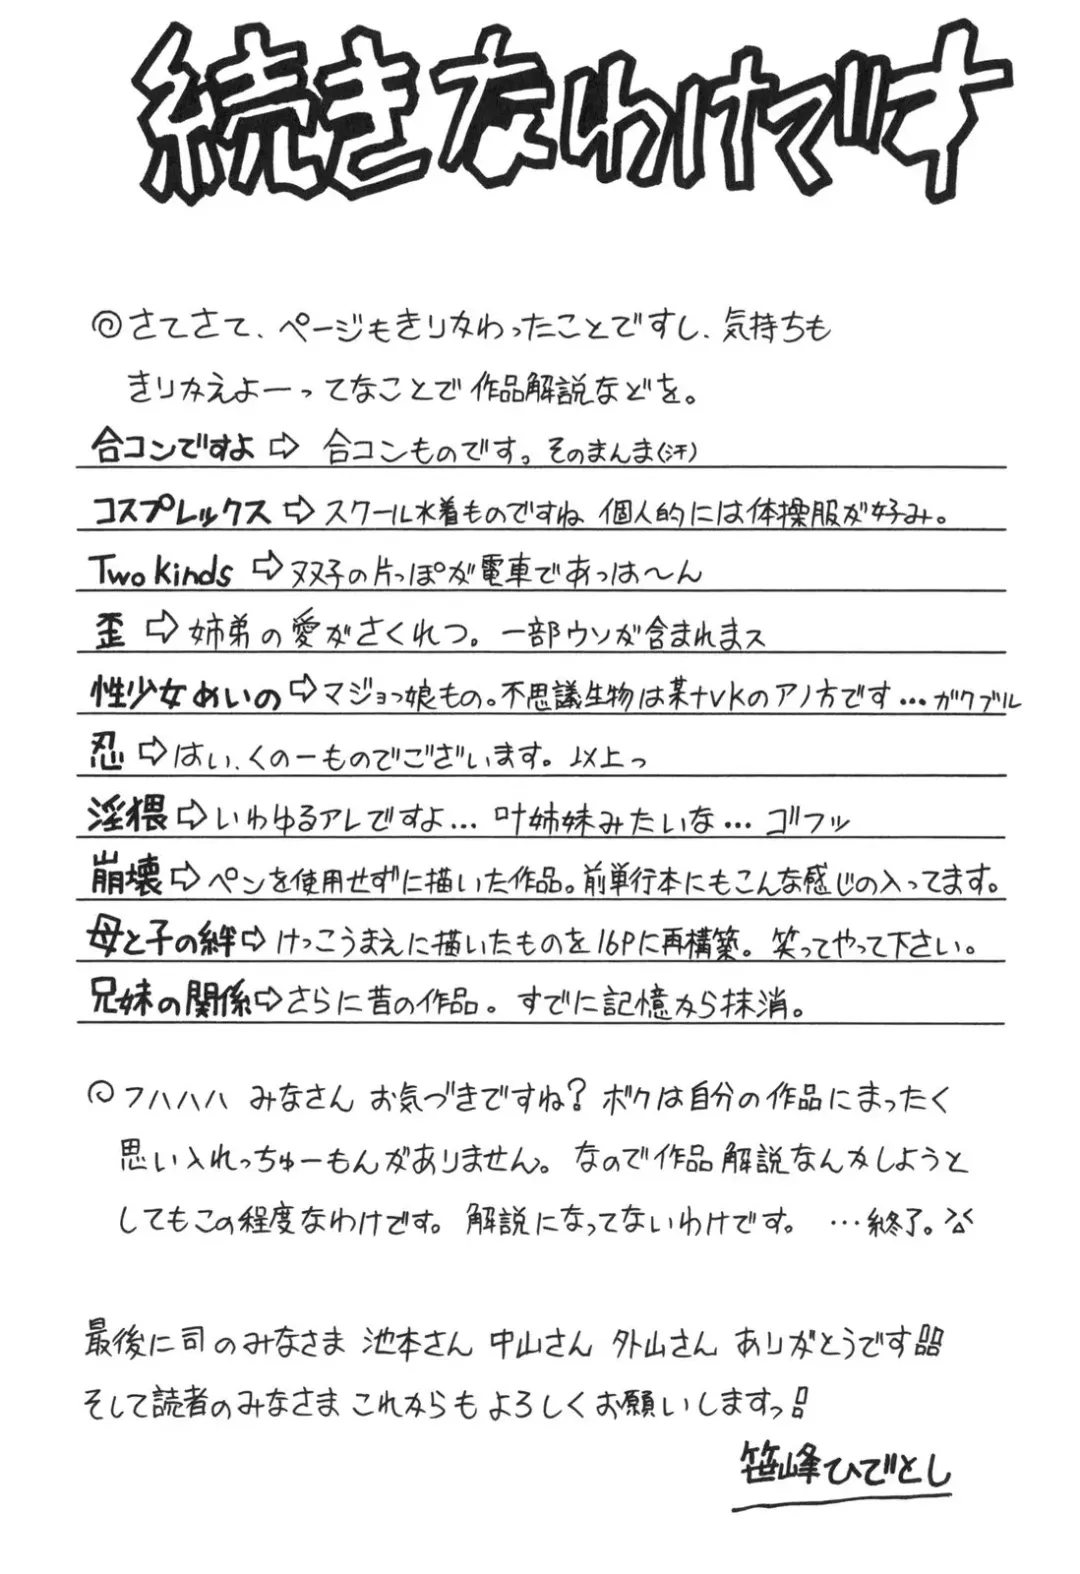 続きなわけです
◎さてさて、ページもきりかわったことですし、気持ちも
きりかえよーってなことで作品解説などを。
合コンですよ⇨合コンものです。そのまんま(汗)
コスプレックス⇨スクール水着ものですね 個人的には体操服が好み。
Two kinds⇨双子の片っぽが電車であっは〜ん
歪⇨姉弟の愛がさくれつ。一部ウソが含まれまス
性少女めいの⇨マジョっ娘もの。不思議生物は某+VKのアノ方です…ガクブル
忍⇨はい、くの一ものでございます。以上っ
淫猥⇨いわゆるアレですよ… 叶姉妹みたいな… ゴフッ
崩壊⇨ペンを使用せずに描いた作品。前単行本にもこんな感じの入ってます。
母と子の絆⇨けっこうまえに描いたものを16Pに再構築。笑ってやって下さい。
兄妹の関係⇨さらに昔の作品。すでに記憶から抹消。
◎フハハハ みなさん お気づきですね? ボクは自分の作品にまったく
思い入れっちゅーもんがありません。なので作品解説なんかしようと
してもこの程度なわけです。解説になってないわけです。 …終了。
最後に司のみなさま 池本さん 中山さん 外山さん ありがとうです!!
そして読者のみなさま これからもよろしくお願いしますっ!
笹峰ひでとし